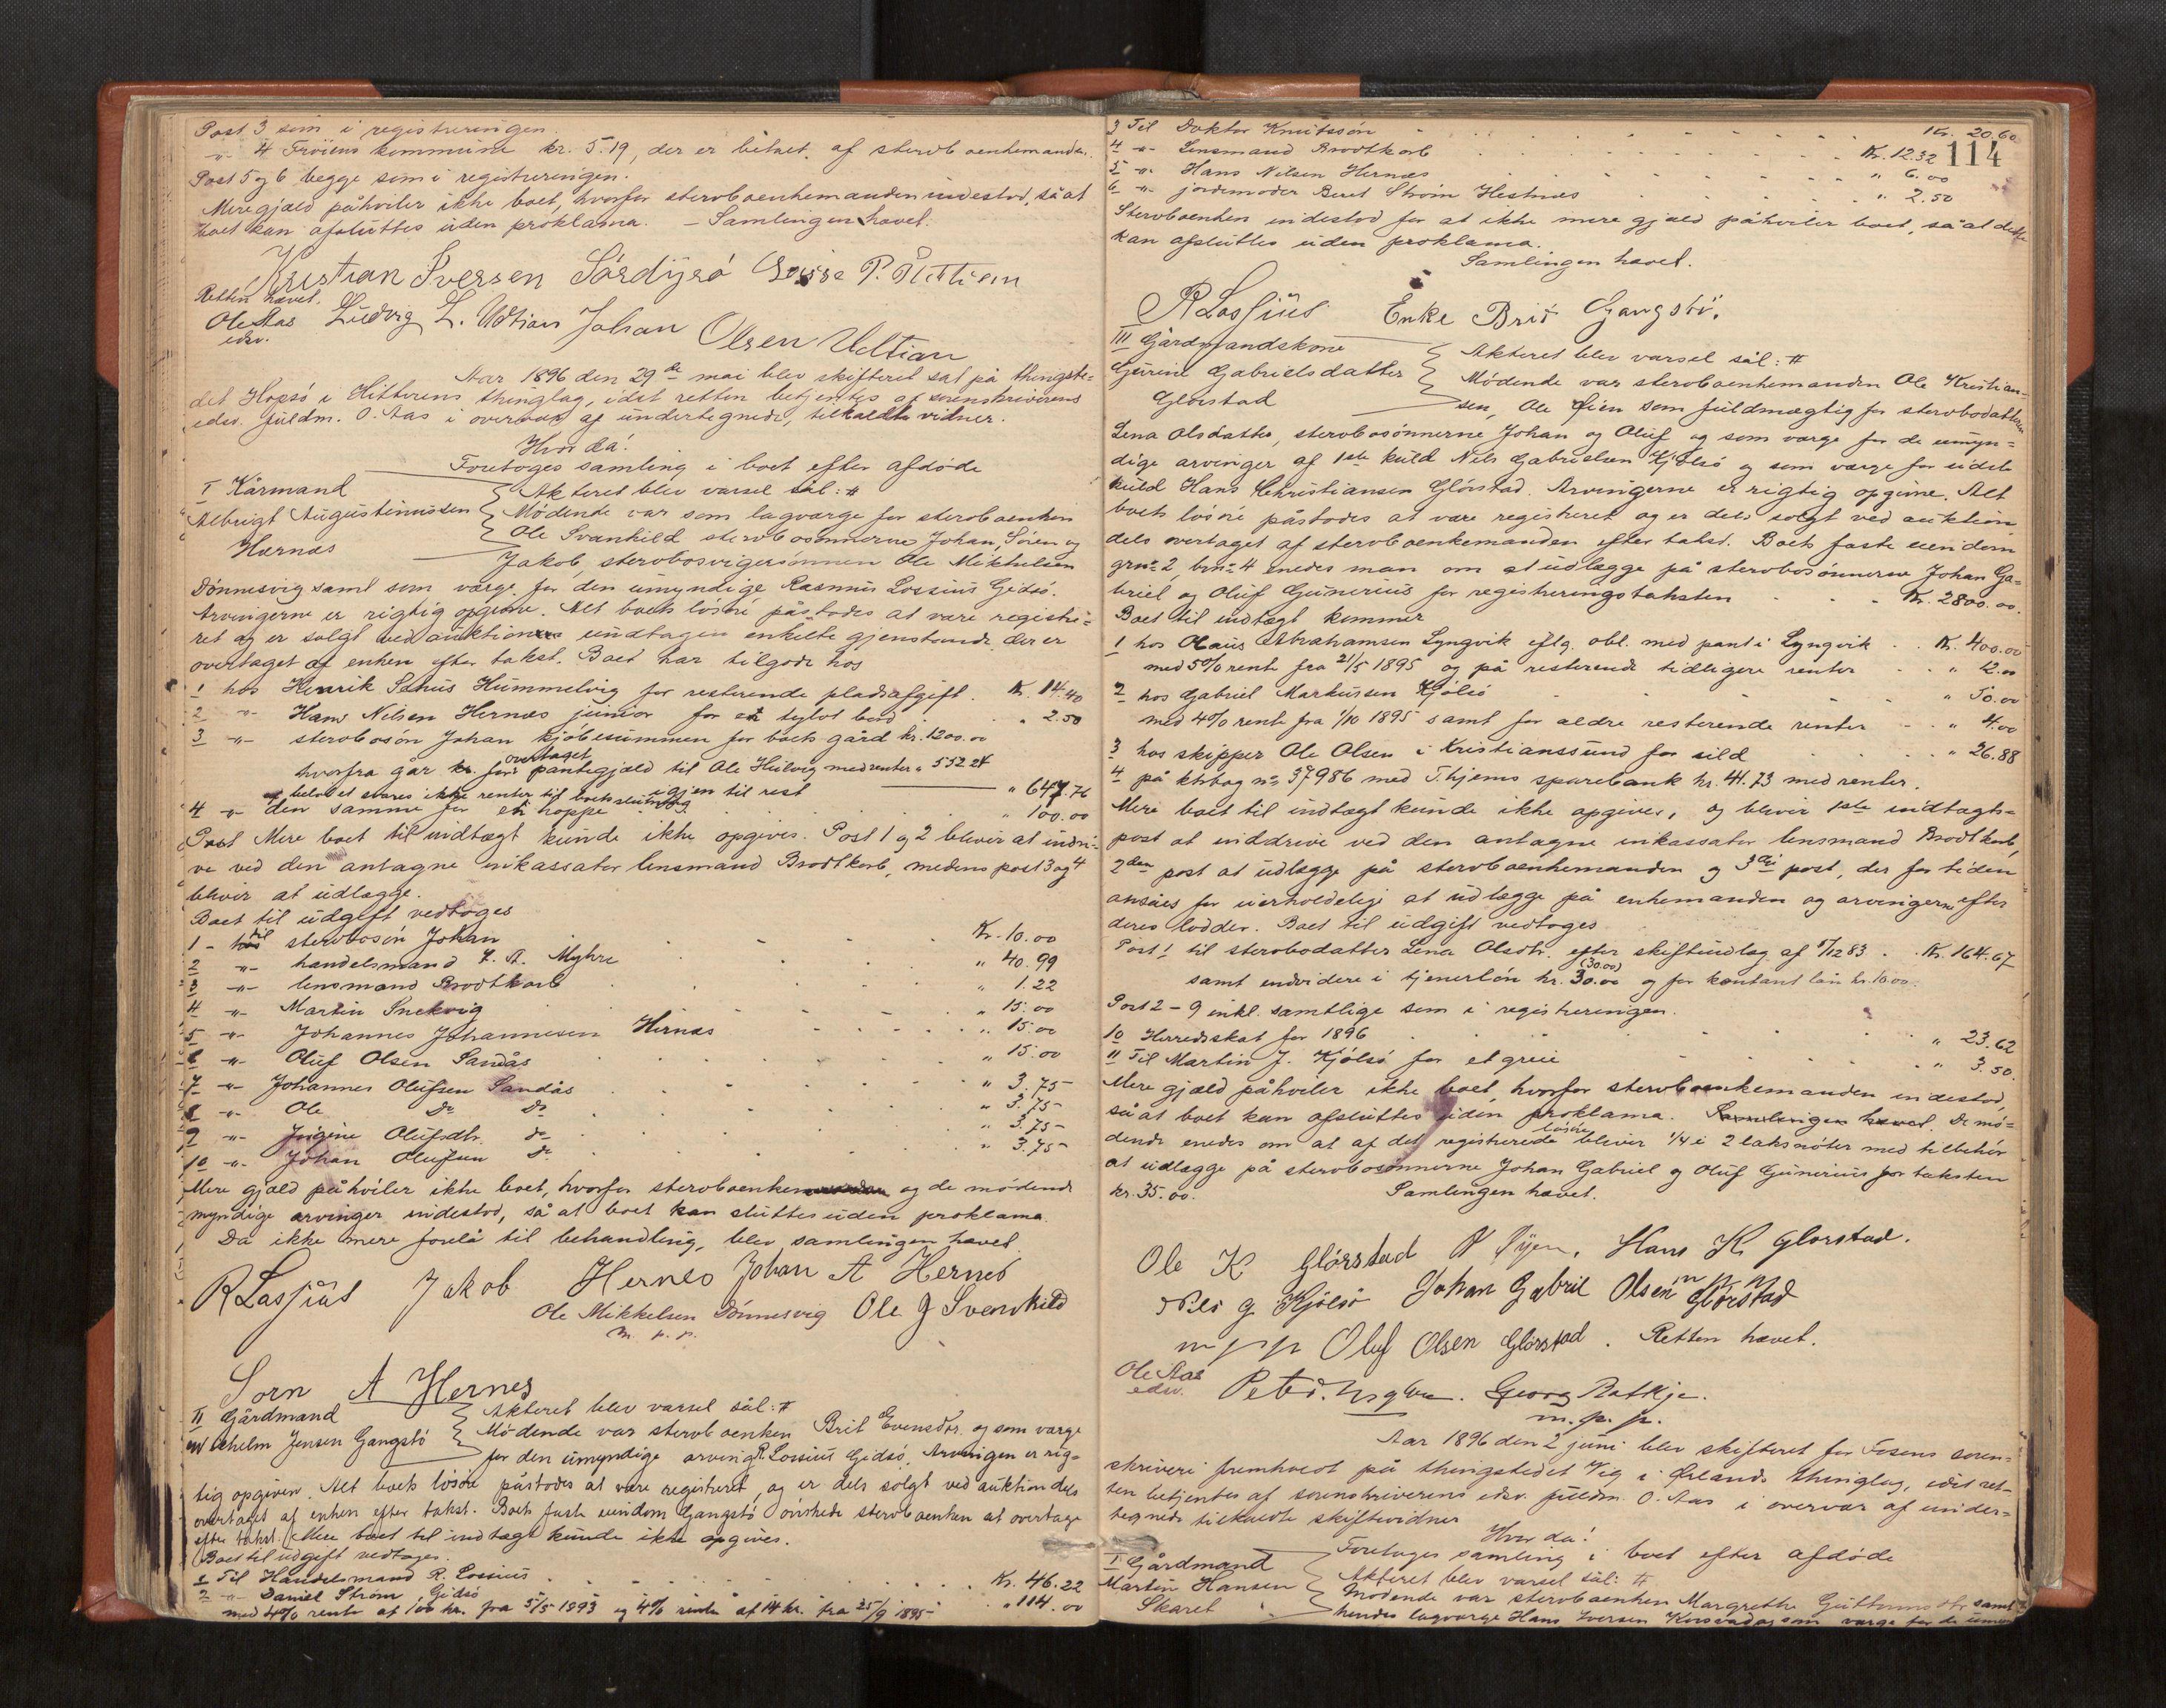 Post 3 som i registreringen.
" 4 Fröiens kommune kr. 5.19, der er betalt af sterboenkemanden.
Post 5 og 6 begge som i registreringen.
Mere gjæld påhviler ikke boet, hvorfor sterboenkemanden indestod, så at
boet kan afsluttes uden proklama. – Samlingen hævet.
Kristian Iversen Sördyrö P.
Retten hævet.
Ole Aas Ludvig L. Udtian Johan Olsen Udtian
edsv.
Aar 1896 den 29de mai blev skifteret sat på thingste-
det Hopsö i Hitterens thinglag, idet retten betjentes af sorenskriverens
edsv. fuldm. O. Aas i overvær af undertegnede, tilkaldte vidner.
Hvor da!
Foretoges samling i boet efter afdöde
I Kårmand
Albrigt Augustinussen
Hernæs
Akteret blev varsel sål: #
Mödende var som lagværge for sterboenken
Ole Svankild sterbosönnerne Johan, Sören og
Jakob, sterbosvigersönnen Ole Mikkelsen
Dönnesvig samt som værge for den umyndige Rasmus Lossius Gidsö.
Arvingerne er rigtig opgivne. Alt boets lösöre påstodes at være registre-
ret og er solgt ved auktion undtagen enkelte gjenstande der er
overtaget af enken efter takst. Boet har tilgode hos
1 hos Henrik Sahus Hummelvig for resterende pladsafgift. Kr. 14.40
2 " Hans Nilsen Hernæs junior for et tylvt bord " 2.50
3 " sterbosön Johan kjöbesummen for boets gård kr. 1200.00
hvorfra går for overtaget pantegjæld til Ole Hilvig med renter " 552.24
belöbet svares ikke renter til boets slutning igjen til rest " 647.76
4 " den samme for en hoppe " 100.00
Mere boet til indtægt kunde ikke opgives. Post 1 og 2 blivir at inddri-
ve ved den antagne inkassator lensmand Brodtkorb, medens post 3 og 4
blivir at udlægge.
Boet til udgift vedtoges
1 - til sterbosön Johan Kr. 10.00
2 " handelsmand Myhre " 40.99
3 " lensmand Brodtkorb " 1.22
4 " Martin Snekvig " 15.00
5 " Johannes Johannesen Hernæs " 15.00
6 " Oluf Olsen Sandås " 15.00
7 " Johannes Olufsen Sandås " 3.75
8 " Ole do do " 3.75
9 " Jrgine Olufsdtr. do " 3.75
10 " Johan Olufsen do " 3.75
Mere gjæld påhviler ikke boet, hvorfor sterboenken og de mödende
myndige arvinger indestod, så at boet kan sluttes uden proklama.
Da ikke mere forelå til behandling, blev samlingen hævet.
R Lossius Jakob Hernes Johan A Hernes
Ole Mikkelsen Dönnesvig Ole J Svankild
m. p. p.
Sorn A Hernes
II Gårdmand
Vilhelm Jensen Gangstö
Akteret blev varsel sål: #
Mödende var sterboenken Brit Evensdtr. og som værge
for den umyndige arving R. Lossius Gidsö. Arvingen er rig-
tig opgiven. Alt boets lösöre påstodes at være registreret, og er dels solgt ved auktion dels
overtaget af enken efter takst. Boets faste eiendom Gangstö önskede sterboenken at overtage
efter takst. Mere boet til indtægt kunde ikke opgives.
Boet til udgift vedtoges.
1 Til Handelsmand R. Lossius Kr. 46.22
2 " Daniel Ström Gidsö " 114.00
med 4% rente af 100 kr. fra 5/5 1893 og 4% rente af 14 kr. fra 25/9 1895
114
3 Til Doktor Knutssön Kr. 20.60
4 " Lensmand Brodtkorb Kr. 12.32
5 " Hans Nilsen Hernæs " 6.00
6 " jordemoder Beret Ström Hestnæs " 2.50
Sterboenken indestod for at ikke mere gjæld påhviler boet, så at dette
kan afsluttes uden proklama.
Samlingen hævet.
R Lossius Enke Brit Gangstö.
III Gårdmandskone
Gurine Gabrielsdatter
Glörstad
Akteret blev varsel sål: #
Mödende var sterboenkemanden Ole Kristian-
sen, Ole Öien som fuldmægtig for sterbodatteren
Lena Olsdatter, sterbosönnerne Johan og Oluf og som værge for de umyn-
dige arvinger af 1ste kuld Nils Gabrielsen Kjölsö og som værge for sidste
kuld Hans Christiansen Glörstad. Arvingerne er rigtig opgivne. Alt
boets lösöre påstodes at være registreret og er dels solgt ved auktion
dels overtaget af sterboenkemanden efter takst. Boets faste eiendom
grno 2, brno 4 enedes man om at udlægge på sterbosönnerne Johan Ga-
briel og Oluf Gunerius for registreringstaksten Kr. 2800.00.
Boet til indtægt kommer
1 hos Olaus Abrahamsen Lyngvik eftg. obl. med pant i Lyngvik Kr. 400.00
med 5% rente fra 21/5 1895 og på resterende tidligere renter " 12.00
2 hos Gabriel Markussen Kjölsö " 50.00
med 4% rente fra 1/10 1895 samt for ældre resterende renter " 4.00
3 hos skipper Ole Olsen i Kristianssund for sild " 26.88
4 på ktrbog no 37986 med T.hjems sparebank kr. 41.73 med renter.
Mere boet til indtægt kunde ikke opgives, og blivir 1ste indtægts-
post at inddrive ved den antagne inkassator lensmand Brodtkorb,
2den post at udlægge på sterboenkemanden og 3die post, der for tiden
ansees for uerholdelig at udlægge på enkemanden og arvingerne efter
deres lodder. Boet til udgift vedtoges
Post 1 til sterbodatter Lena Olsdtr. efter skifteudlæg af 1/12 83 Kr. 164.67
samt endvidere i tjenerlön kr. 30.00 (30.00) og for kontant lån kr. 10.00.
Post 2 – 9 inkl. samtlige som i registreringen.
10 Herredsskat for 1896 " 23.62
11 Til Martin J. Kjölsö for et greie " 3.50.
Mere gjæld påhviler ikke boet, hvorfor sterboenkemanden indestod,
så at boet kan afsluttes uden proklama. Samlingen hævet. De mö-
dende enedes om at af det registrerede lösöre blivir 1/4 i 2 laksnöter med tilbehör
at udlægge på sterbosönnerne Johan Gabriel og Oluf Gunerius for taksten
kr. 35.00. Samlingen hævet.
Ole K Glörstad O Öyen. Hans K. Glorstad.
Nils G Kjölsö Johan Gabriel Olsen Glörstad m p p
m p p Oluf Olsen Glörstad. Retten hævet.
Ole Aas
edsv. Georg Ratkje.
m. p. p.
Aar 1896 den 2 juni blev skifteret for Fosens soren-
skriveri fremholdt på thingstedet Vig i Ørlands thinglag, idet ret-
ten betjentes af sorenskriverens edsv. fuldm. O. Aas i overvær af under-
tegnede tilkaldte skiftevidner
Hvor da!
Foretoges samling i boet efter afdöde
I Gårdmand
Martin Hansen
Skaret
Akteret blev varsel sål: #
Mödende var sterboenken Margrethe Guttormsdtr samt
hendes lagværge Hans Iversen og som værge for de umyn